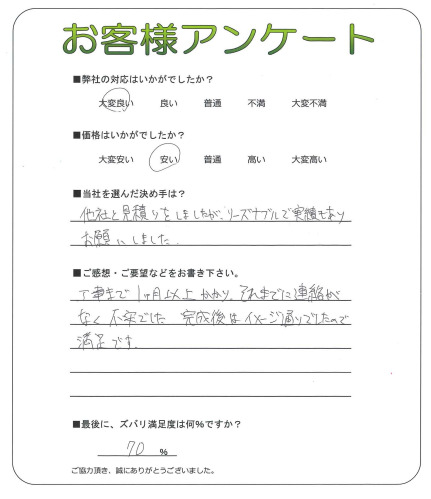 お客様アンケート
■弊社の対応はいかがでしたか？
大変良い 良い 普通 不満 大変不満
■価格はいかがでしたか？
大変安い 安い 普通 高い 大変高い
■当社を選んだ決め手は？
他社と見積りをしましたが、リーズナブルで実績もあり
お願いしました。
■ご感想・ご要望などをお書き下さい。
工事まで1ヶ月以上かかり、それまでに連絡が
なく不安でした 完成後はイメージ通りでしたので
満足です。
■最後に、ズバリ満足度は何%ですか？
70 %
ご協力頂き、誠にありがとうございました。